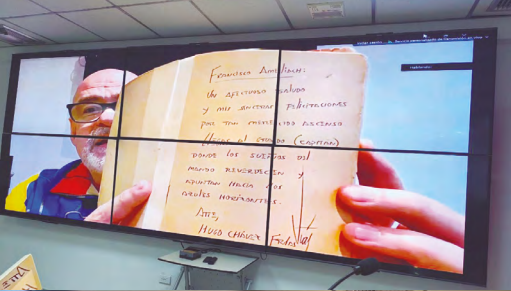 FRANCISCO AMELIACH:
UN AFECTUOSO SALUDO
Y MIS SINCERAS FELICITACIONES
POR TAN MERECIDO ASCENSO
AL GRADO (CAPITÁN)
DONDE LOS SUEÑOS DEL
MANDO REVERDECEN Y
APUNTAN HACIA LOS
AZULES HORIZONTES.
ATTE,
HUGO CHÁVEZ FRÍAS